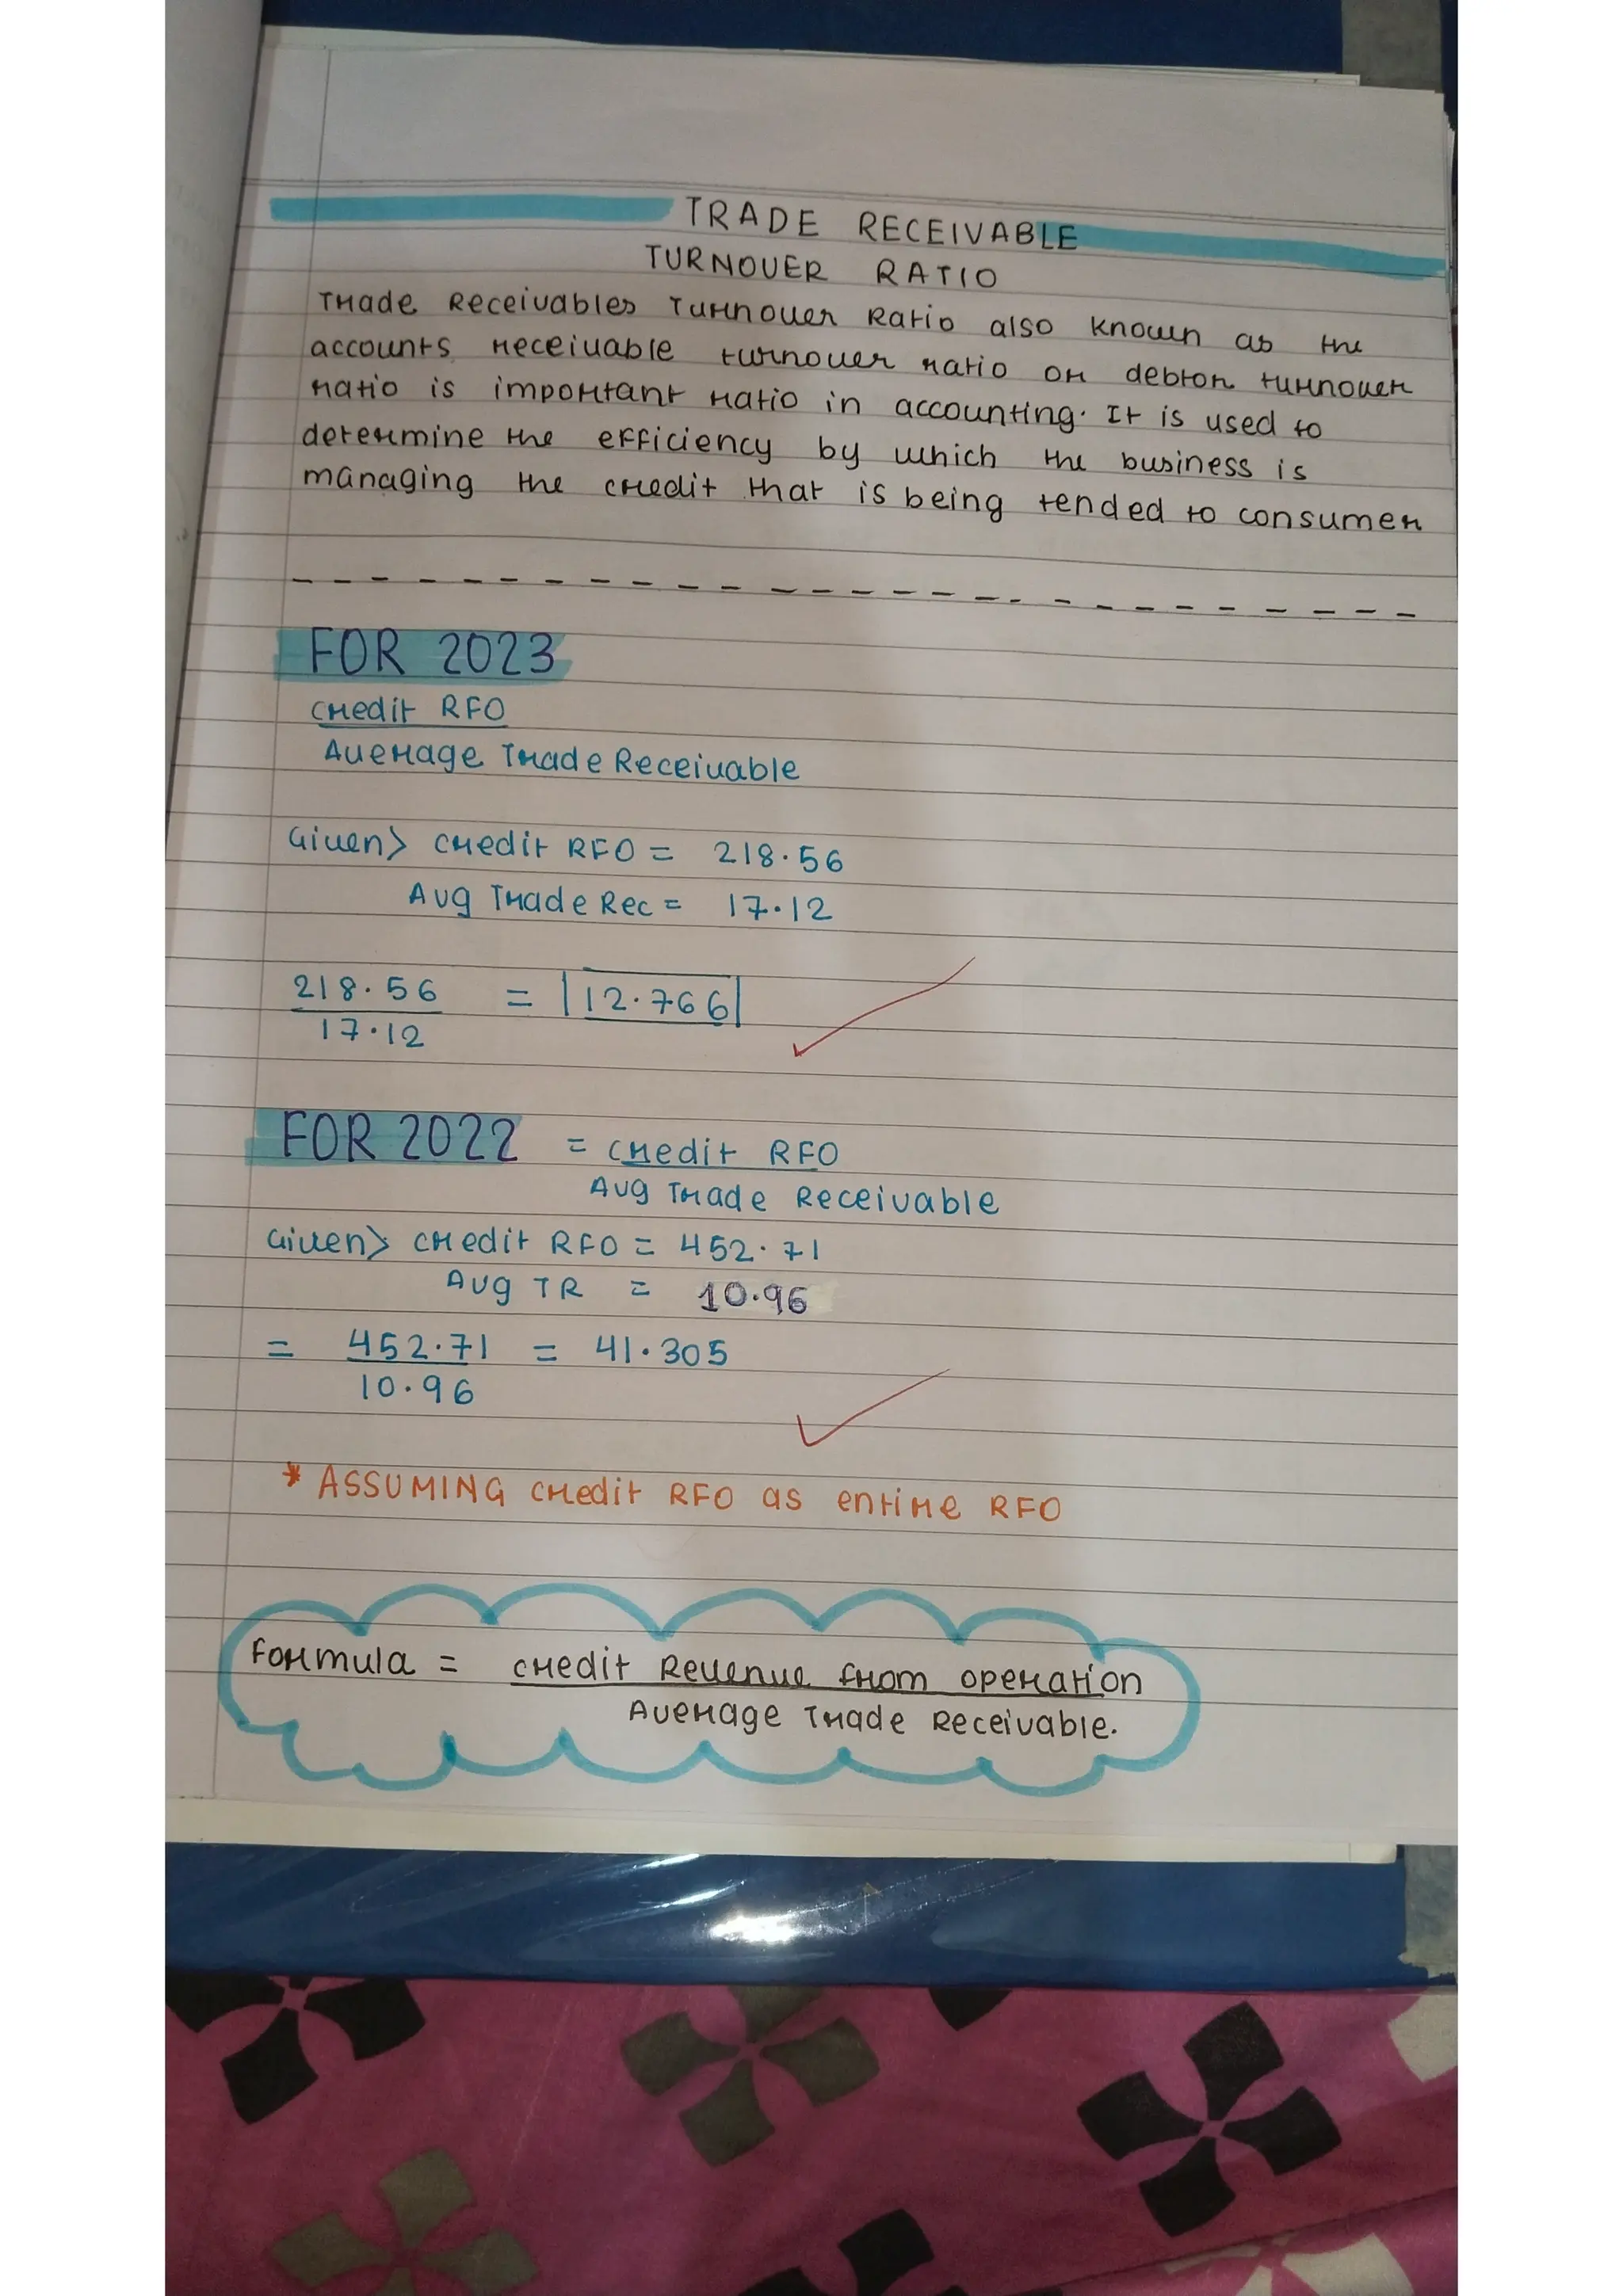 TRADE RECEIVABLE
TURNOVER RATIO
Trade Receivables Turnover Ratio also known as the
accounts receivable turnover ratio or debtor turnover
ratio is important ratio in accounting. It is used to
determine the efficiency by which the business is
managing the credit that is being tended to consumer
FOR 2023
Credit RFO
Average Trade Receivable
Given> Credit RFO = 218.56
Avg Trade Rec = 17.12
218.56 = |12.766|
17.12
FOR 2022 = Credit RFO
Avg Trade Receivable
Given> Credit RFO = 452.71
Avg TR = 10.96
= 452.71 = 41.305
10.96
* ASSUMING Credit RFO as entire RFO
Formula = Credit Revenue from operation
Average Trade Receivable.